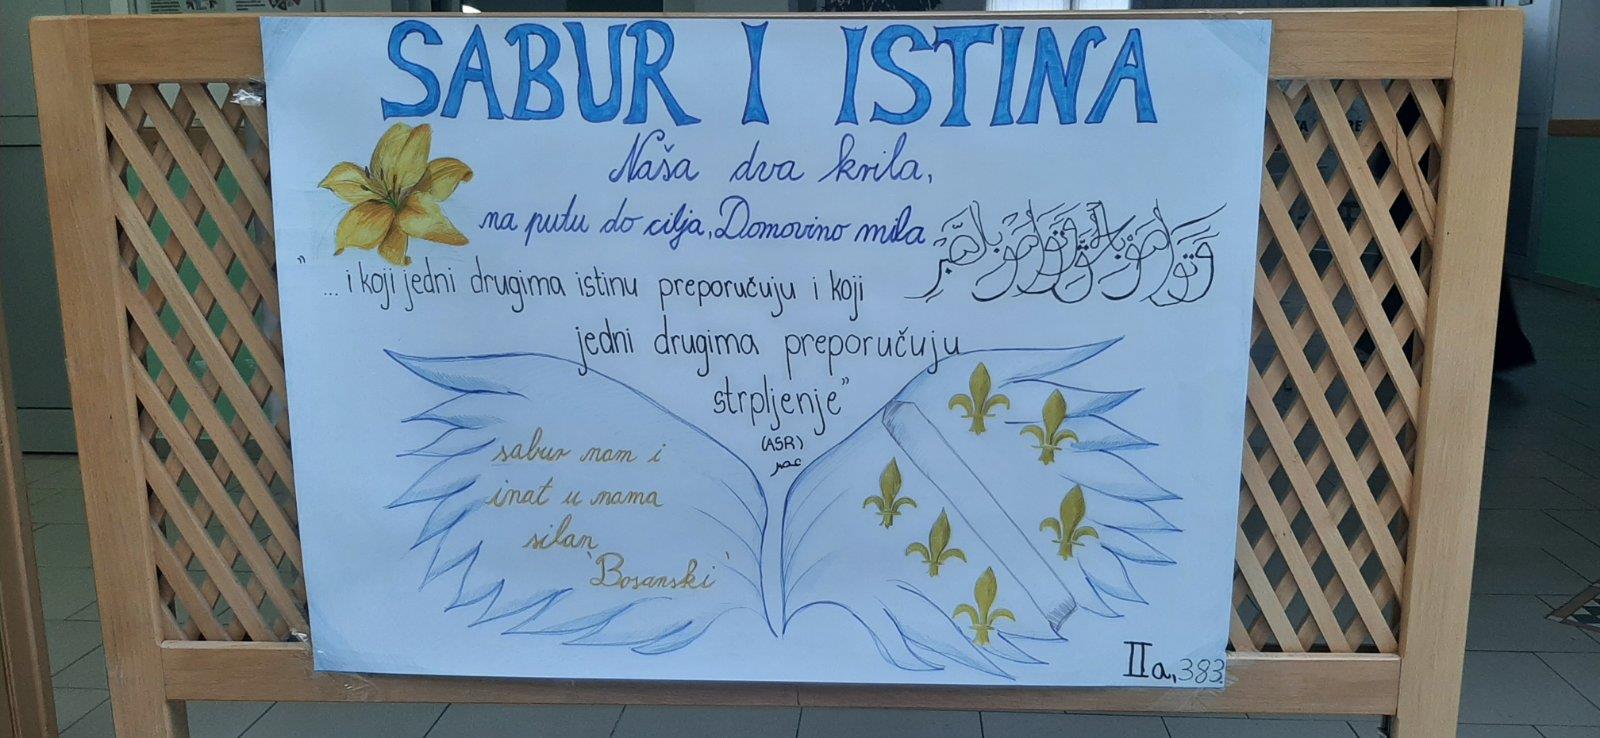 SABUR I ISTINA
Naša dva krila,
na putu do cilja, Domovino mila
وتواصوا بالحق وتواصوا بالصبر
"... i koji jedni drugima istinu preporučuju i koji
jedni drugima preporučuju
strpljenje"
(ASR)
عصر
sabur nam i
inat u nama
silan
'Bosanski'
IIa, 383.